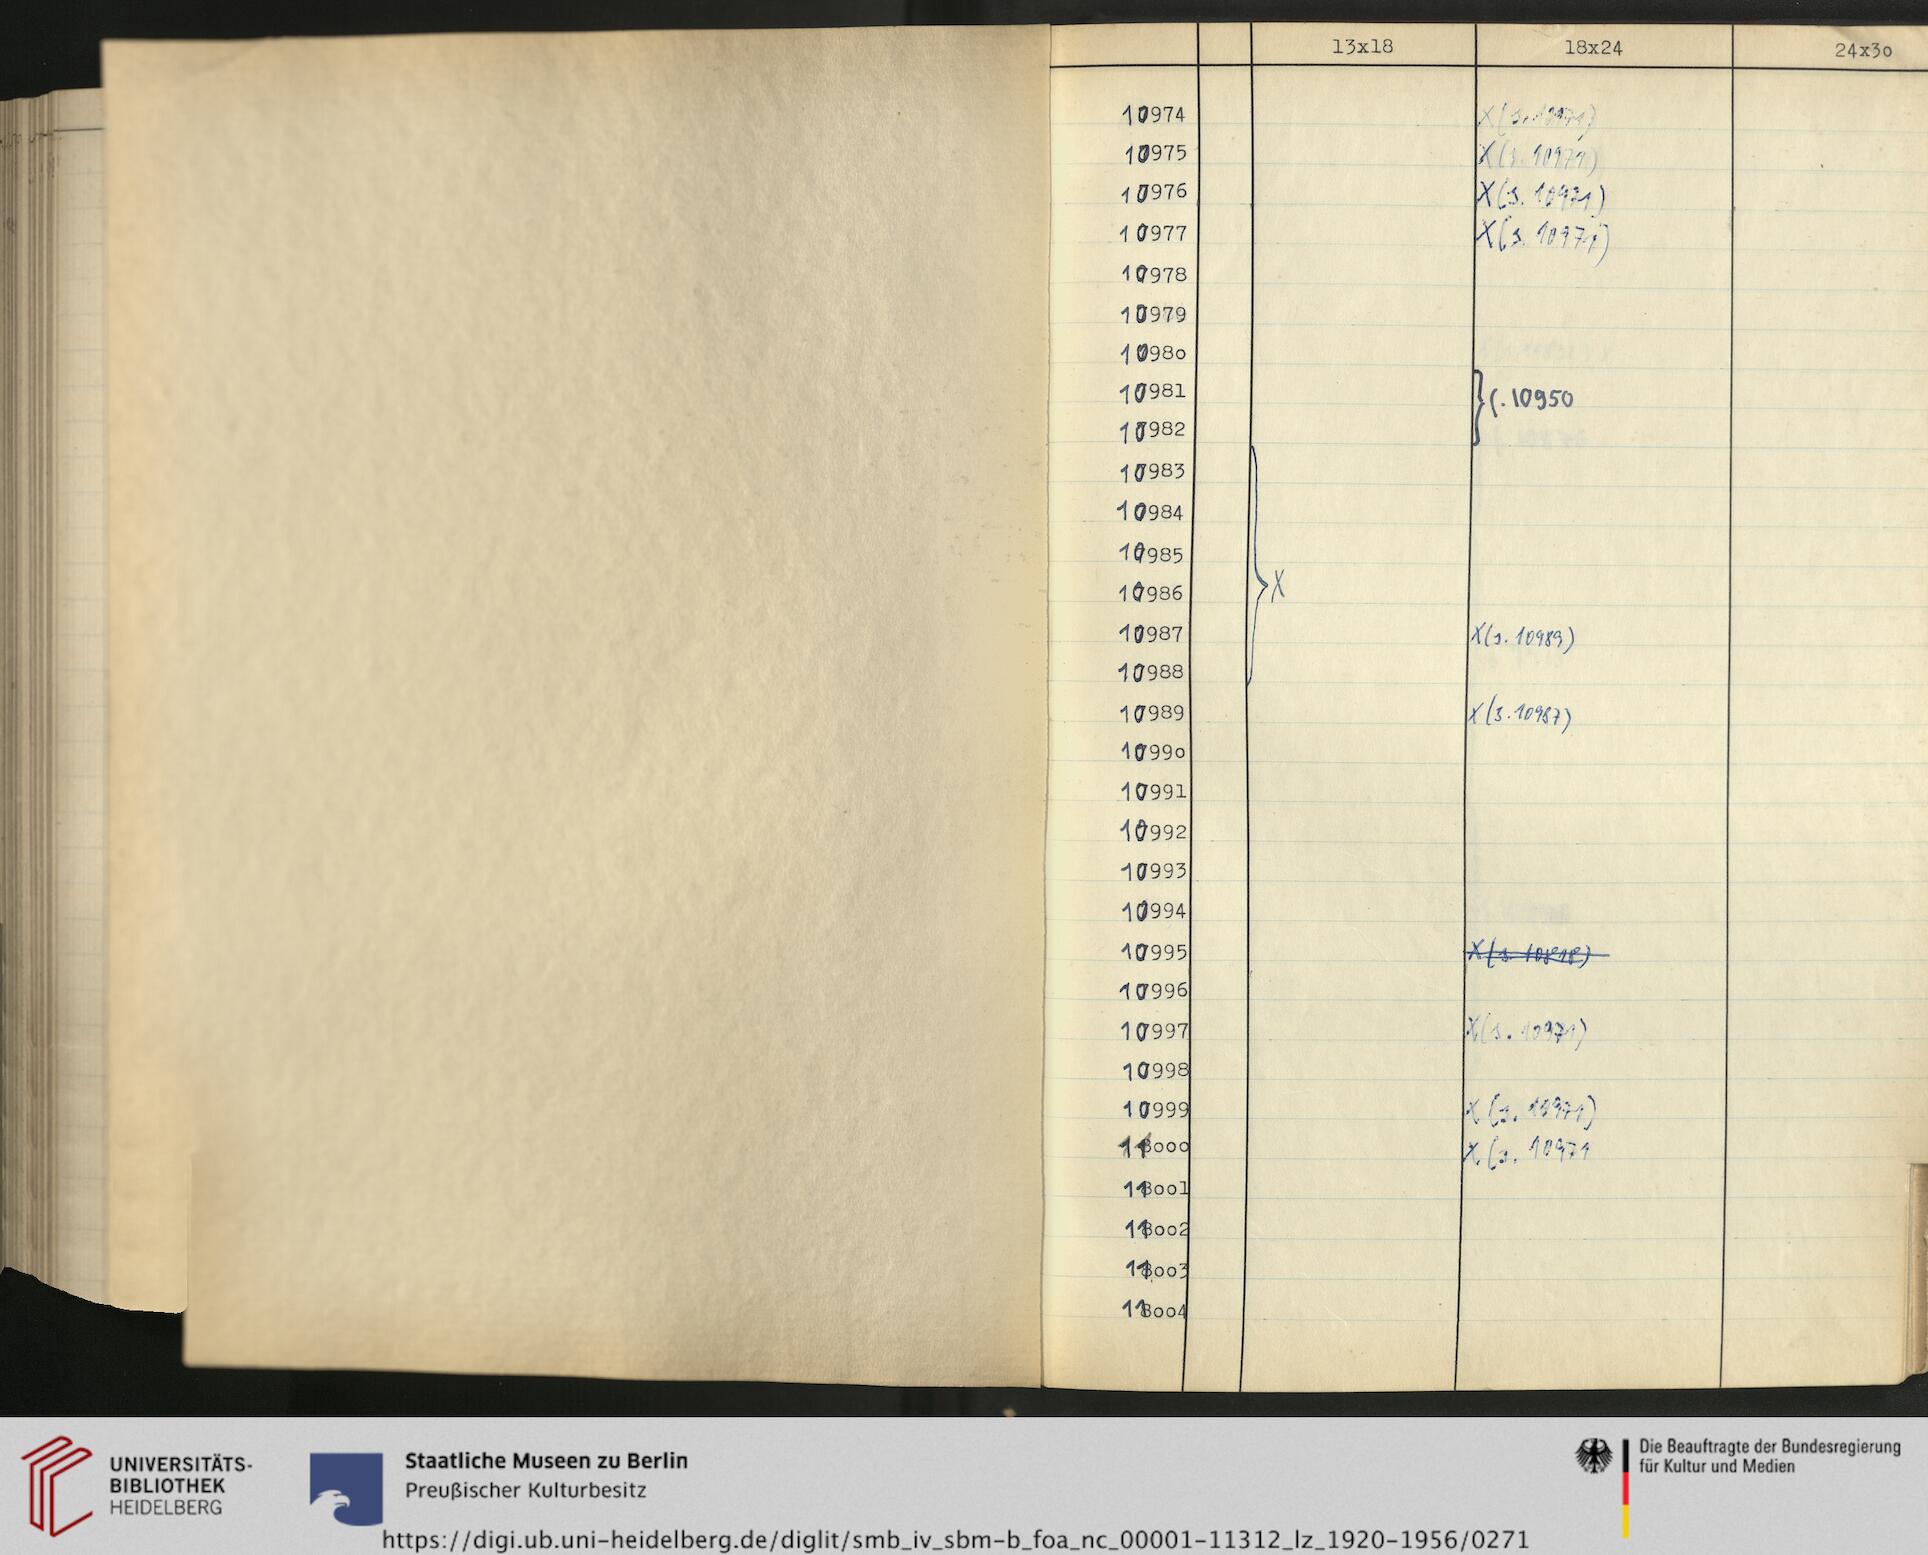 13x18 18x24 24x3o
10974 X(s. 10971)
10975 X(s. 10971)
10976 X(s. 10971)
10977 X(s. 10971)
10978
10979
1098o
10981
} (. 10950
10982
10983
10984
10985
10986 } X
10987 X(s. 10989)
10988
10989 X(s. 10987)
1099o
10991
10992
10993
10994
10995 X(s.
10996
10997 X(s. 10971)
10998
10999 X (s. 10971)
11ooo X (s. 10971
11oo1
11oo2
11oo3
11oo4
UNIVERSITÄTS-
BIBLIOTHEK
HEIDELBERG
Staatliche Museen zu Berlin
Preußischer Kulturbesitz
Die Beauftragte der Bundesregierung
für Kultur und Medien
https://digi.ub.uni-heidelberg.de/diglit/smb_iv_sbm-b_foa_nc_00001-11312_lz_1920-1956/0271